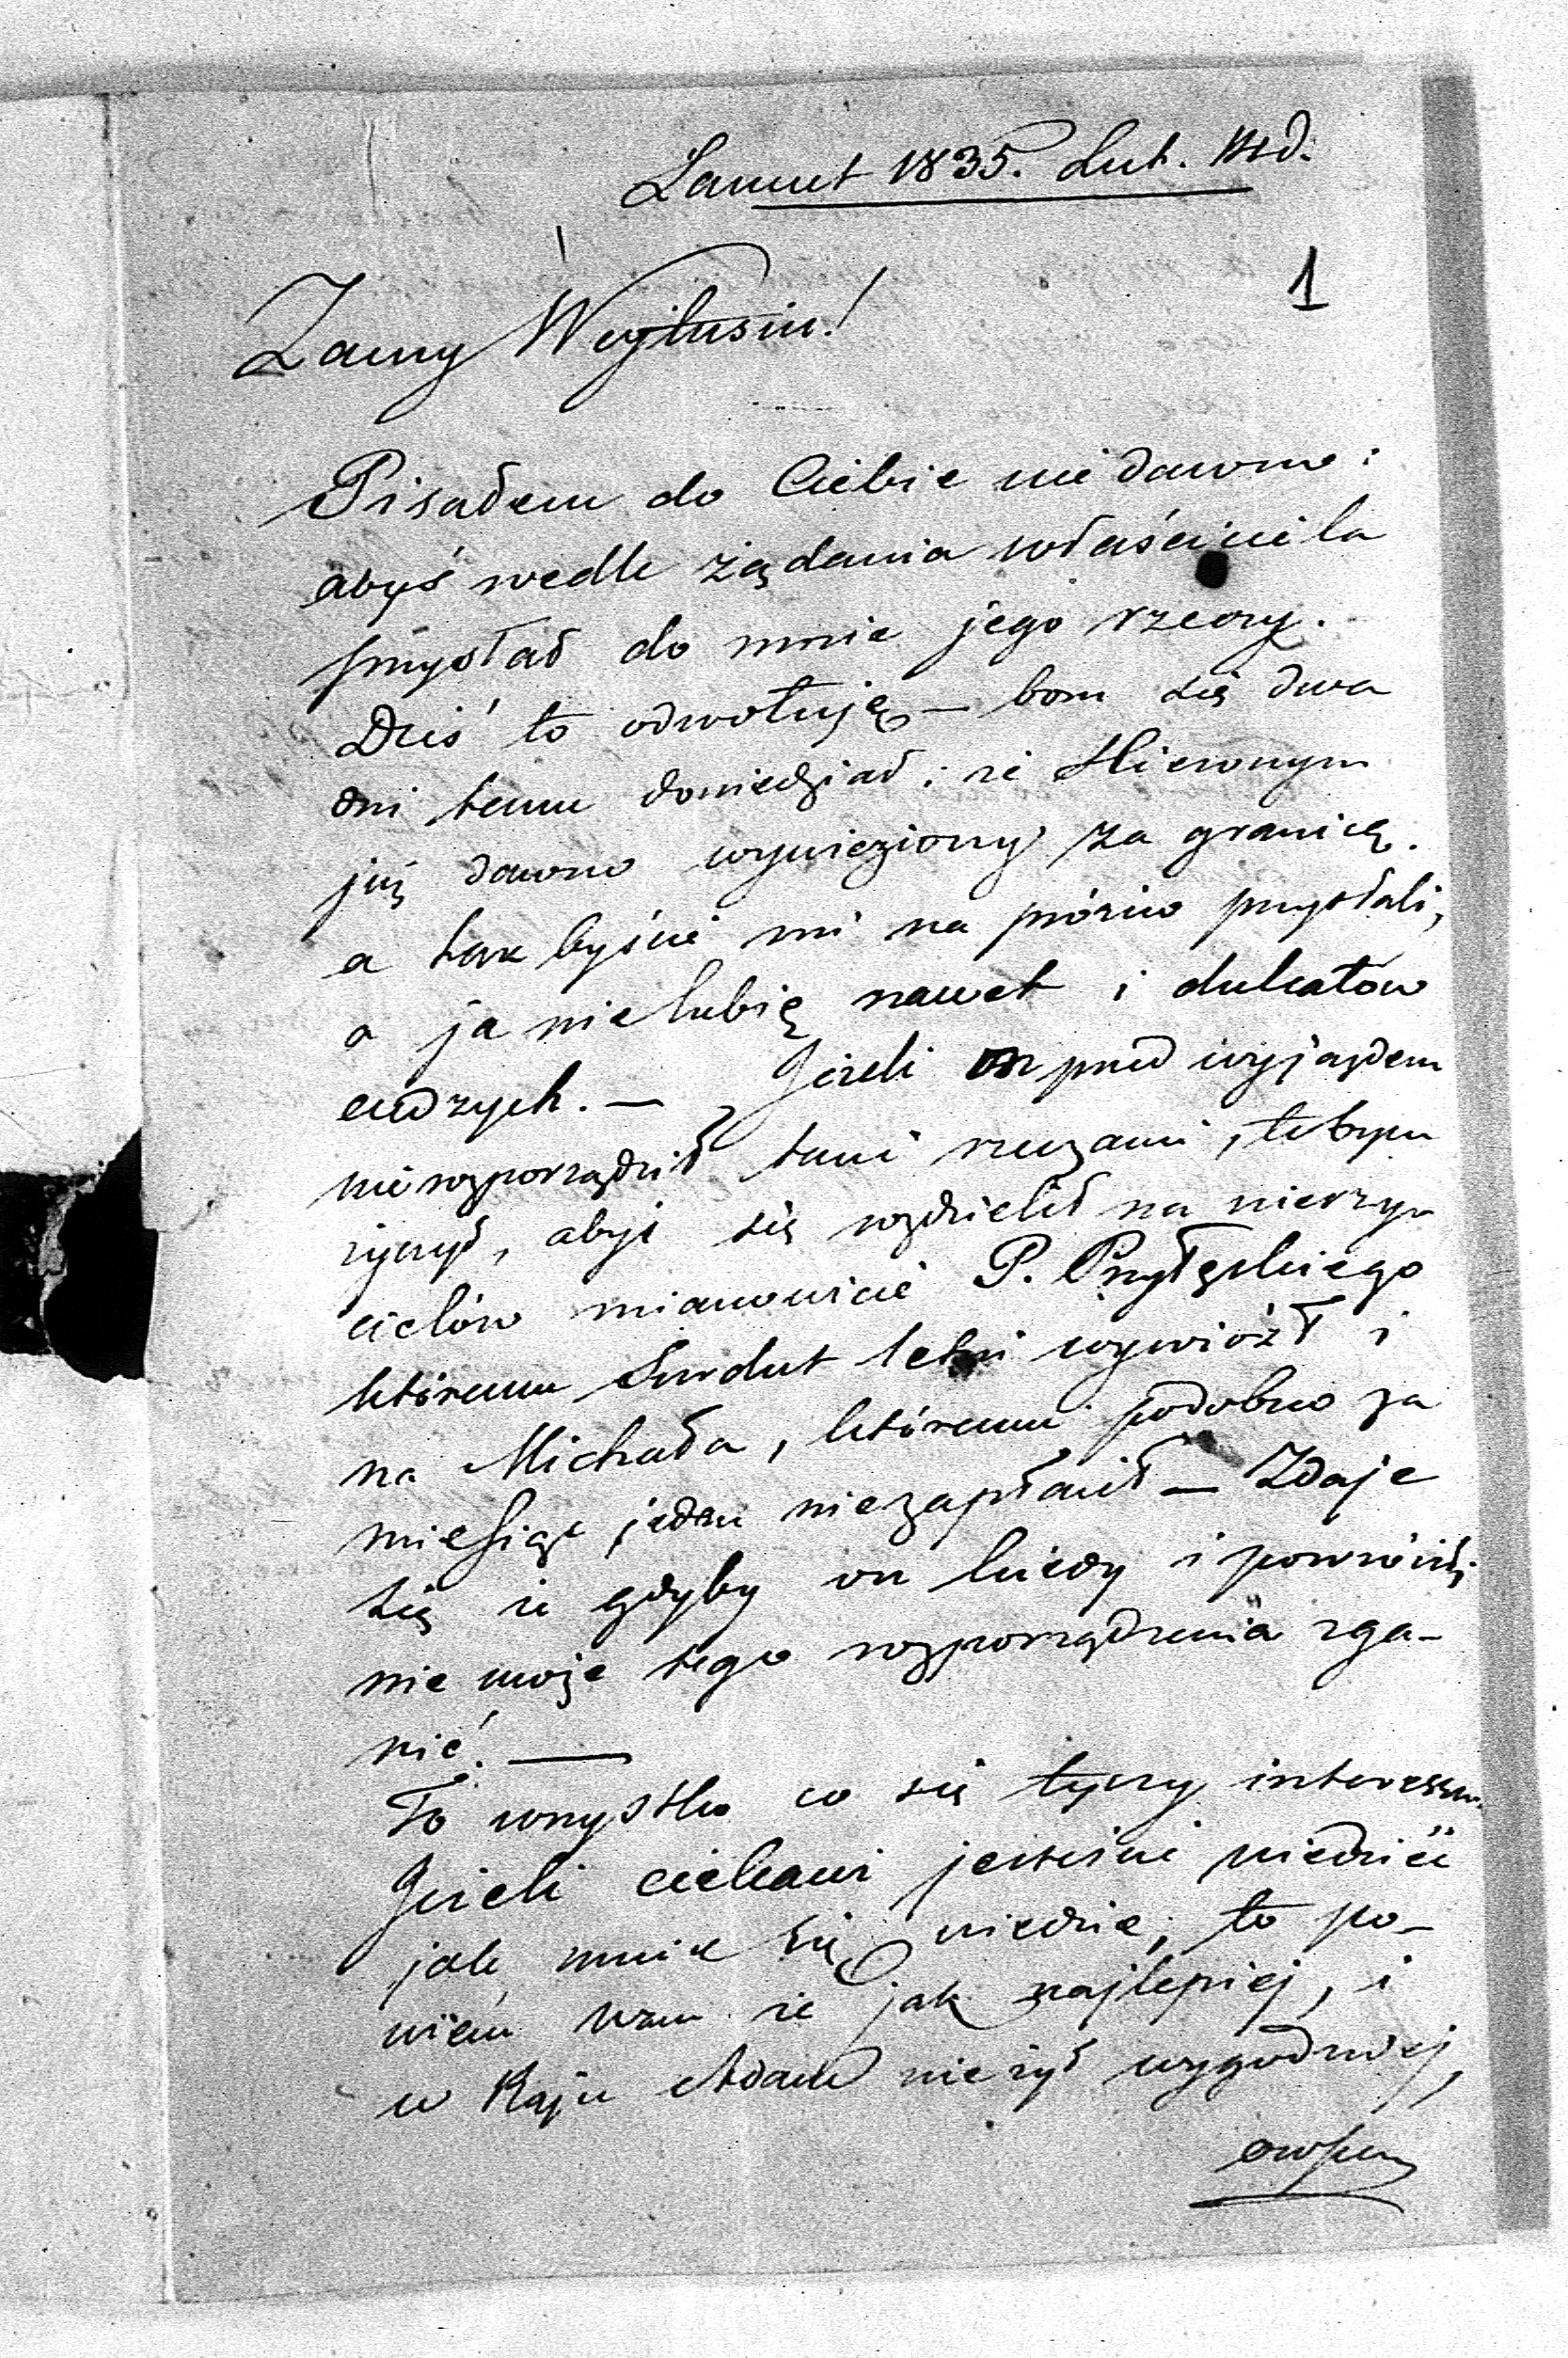 Łańcut 1835. Lut. 14 d.
1
Zacny Wojtusiu!
Pisałem do Ciebie niedawno:
abyś wedle żądania właściciela
przysłał do mnie jego rzeczy.
Dziś to odwołuję – bom się dwa
dni temu dowiedział; że Hieronym
już dawno wywieziony za granicę.
a tak byście mi na próżno przysłali,
a ja nie lubię nawet i dukatów
cudzych. — Jeżeli on przed wyjazdem
nie rozporządził temi rzeczami, to bym
życzył, abyś się rozdzielił na wierzy-
cielów mianowicie P. Przyłęckiego
któremu surdut letni wywiózł i
na Michała, któremu podobno za
miesiąc jeden niezapłacił — Zdaje
się że gdyby on kiedy i powrócił;
nie może tego rozporządzenia zga-
nić. —
To wszystko co się tyczy interessu.
Jeżeli ciekawi jesteście wiedzieć
jak mnie się wiedzie; to po-
wiem wam że jak najlepiej, i
w Raju Adam nie żył wygodniej,
owszem